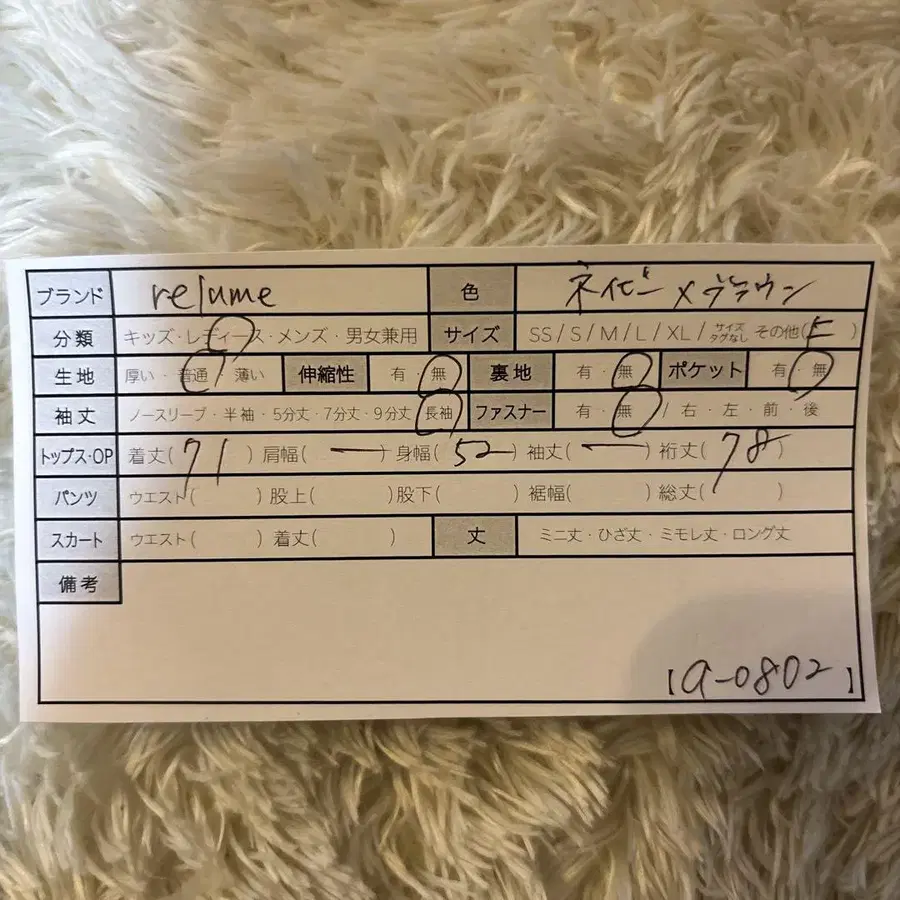 ブランド relume 色 ネイビー×ブラウン
分類 キッズ・レディース・メンズ・男女兼用 サイズ SS/S/M/L/XL/サイズタグなし その他( )
生地 厚い・普通・薄い 伸縮性 有・無 裏地 有・無 ポケット 有・無
袖丈 ノースリーブ・半袖・5分丈・7分丈・9分丈・長袖 ファスナー 有・無/右・左・前・後
トップス・OP 着丈(71) 肩幅(ー) 身幅(52) 袖丈(ー) 裄丈(78)
パンツ ウエスト( ) 股上( ) 股下( ) 裾幅( ) 総丈( )
スカート ウエスト( ) 着丈( ) 丈 ミニ丈・ひざ丈・ミモレ丈・ロング丈
備考
【a-0802】